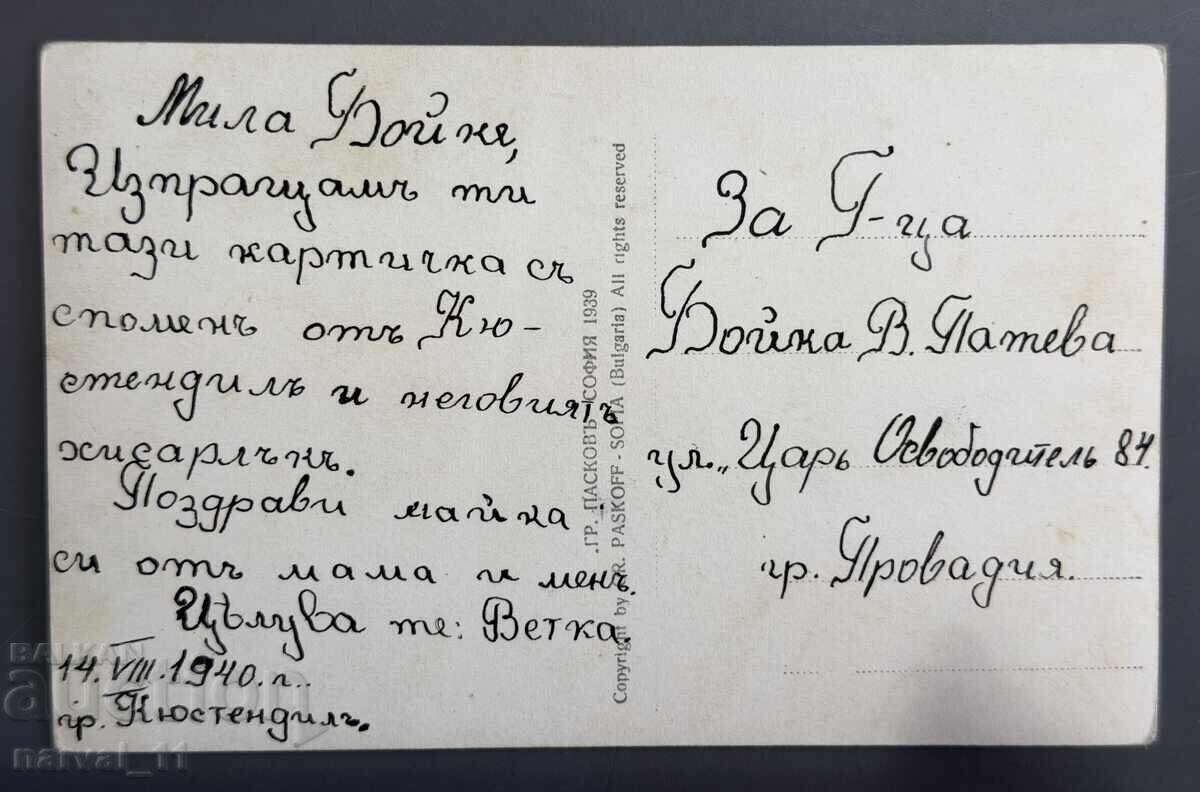 Мила Бойке,
Изпращамъ ти
тази картичка съ
споменъ отъ Кю-
стендилъ и неговиятъ
хисарлъкъ.
Поздрави майка
си отъ мама и менъ.
Цълува те: Ветка.
14.VIII.1940.г..
гр. Кюстендилъ.
ГР. ПАСКОВЪ - СОФИЯ 1939
Copyright by GR. PASKOFF - SOFIA (Bulgaria) All rights reserved
За Г-ца
Бойка В. Патева
ул. „Царь Освободитель 84.
гр. Провадия.
BALKAN
auction
naival_11